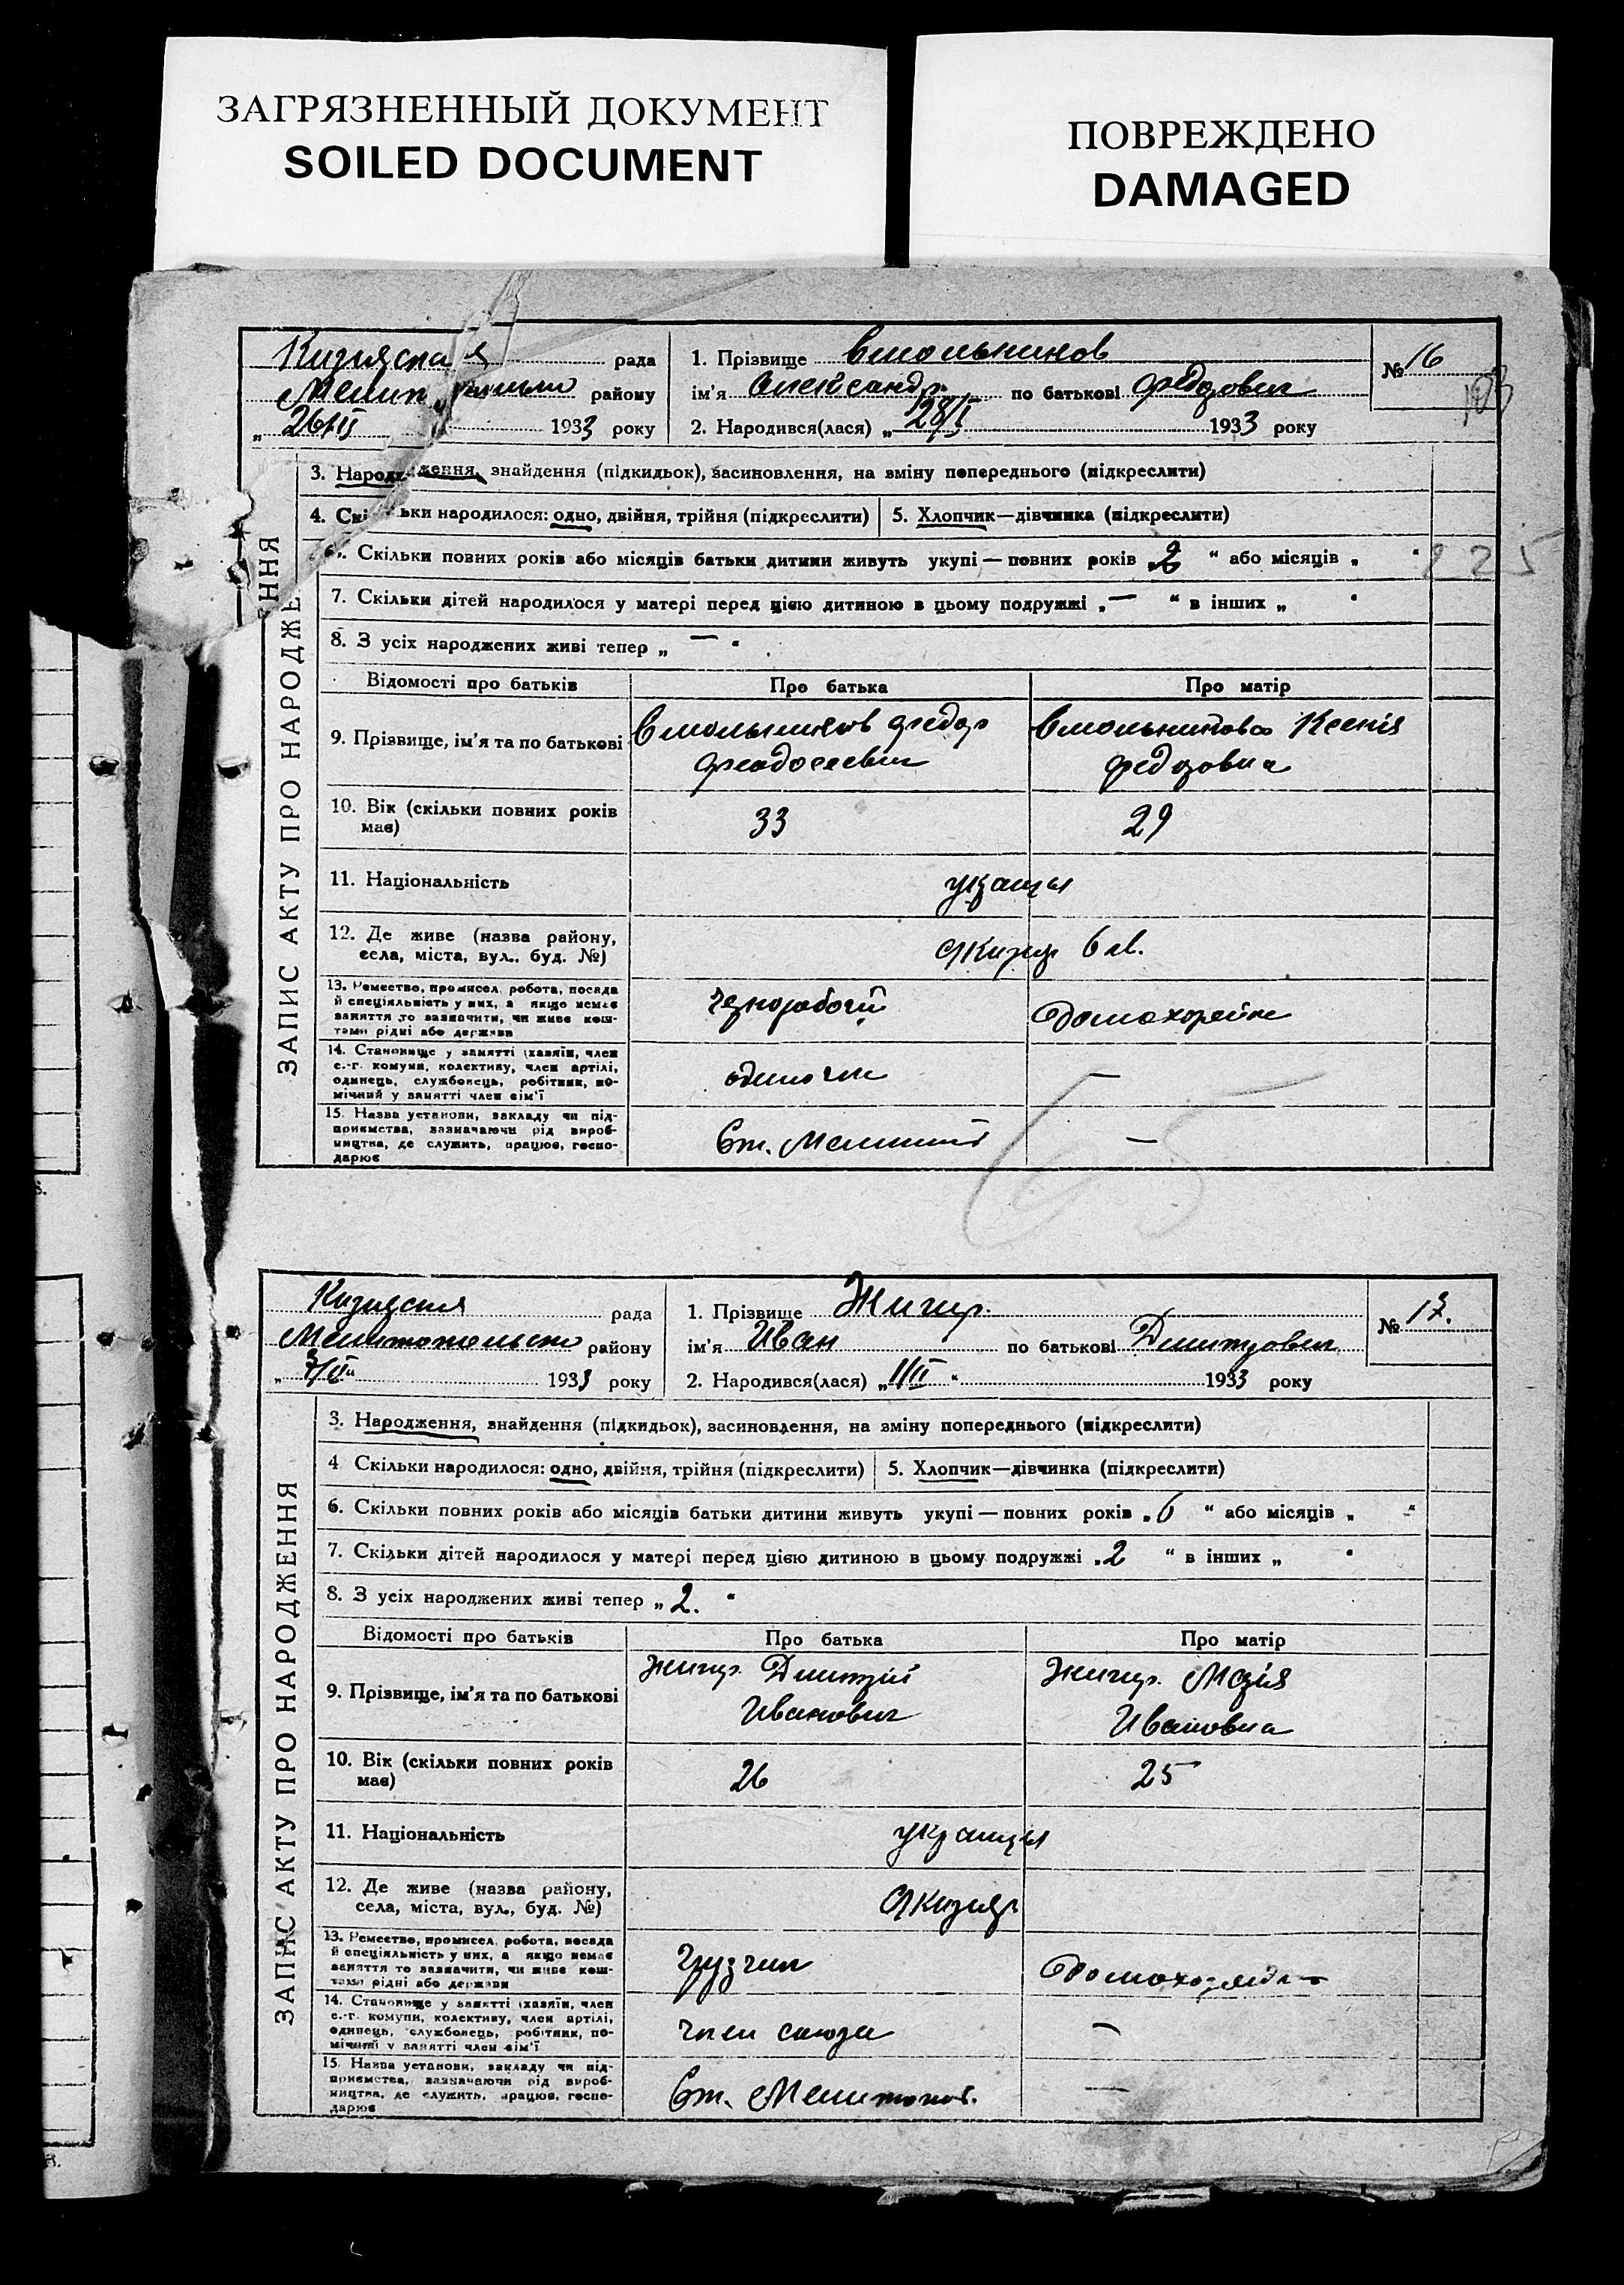 ЗАГРЯЗНЕННЫЙ ДОКУМЕНТ
SOILED DOCUMENT
ПОВРЕЖДЕНО
DAMAGED
рада
району
1933 року
1. Прізвище
ім'я Александр по батькові Федорович
2. Народився(лася) „28/I 1933 року
№ 16
3. Народження, знайдення (підкидьок), засиновлення, на зміну попереднього (підкреслити)
4. Скільки народилося: одно, двійня, трійня (підкреслити)
5. Хлопчик—дівчинка (підкреслити)
6. Скільки повних років або місяців батьки дитини живуть укупі — повних років „2 “ або місяців „ “
225
7. Скільки дітей народилося у матері перед цією дитиною в цьому подружжі „— “ в інших „ “
8. З усіх народжених живі тепер „ — “
ЗАПИС АКТУ ПРО НАРОДЖЕННЯ
Відомості про батьків Про батька Про матір
9. Прізвище, ім'я та по батькові
Федор
Ксенія
Феодосеевич
Федоровна
10. Вік (скільки повних років
має)
33 29
11. Національність
украинцы
12. Де живе (назва району,
села, міста, вул., буд. №)
13. Ремество, промисел, робота, посада
й спеціяльність у них, а якщо немає
заняття то зазначити, чи живе кош-
тами рідні або держави
чернорабочій
14. Становище у занятті (хазяїн, член
с.-г. комуни, колективу, член артілі,
одинець, службовець, робітник, по-
мічний у занятті член сім'ї
одиночка —
15. Назва установи, закладу чи під-
приємства, зазначаючи рід вироб-
ництва, де служить, працює, госпо-
дарює
Ст. —
65
рада
Мелитопольского району
1933 року
1. Прізвище Жигир
ім'я Иван по батькові Дмитрович
2. Народився(лася) „1/II “ 1933 року
№ 17.
3. Народження, знайдення (підкидьок), засиновлення, на зміну попереднього (підкреслити)
4 Скільки народилося: одно, двійня, трійня (підкреслити)
5. Хлопчик—дівчинка (підкреслити)
6. Скільки повних років або місяців батьки дитини живуть укупі — повних років „6 “ або місяців „ “
7. Скільки дітей народилося у матері перед цією дитиною в цьому подружжі „2 “ в інших „ “
8. З усіх народжених живі тепер „ 2. “
ЗАПИС АКТУ ПРО НАРОДЖЕННЯ
Відомості про батьків Про батька Про матір
9. Прізвище, ім'я та по батькові
Жигир Дмитрій
Иванович
Жигир Марія
Ивановна
10. Вік (скільки повних років
має)
26 25
11. Національність
украинцы
12. Де живе (назва району,
села, міста, вул., буд. №)
13. Ремество, промисел, робота, посада
й спеціяльність у них, а якщо немає
заняття то зазначити, чи живе кош-
тами рідні або держави
грузчик
14. Становище у занятті (хазяїн, член
с.-г. комуни, колективу, член артілі,
одинець, службовець, робітник, по-
мічний у занятті член сім'ї
член союза —
15. Назва установи, закладу чи під-
приємства, зазначаючи рід вироб-
ництва, де служить, працює, госпо-
дарює
Ст. Мелитополь —